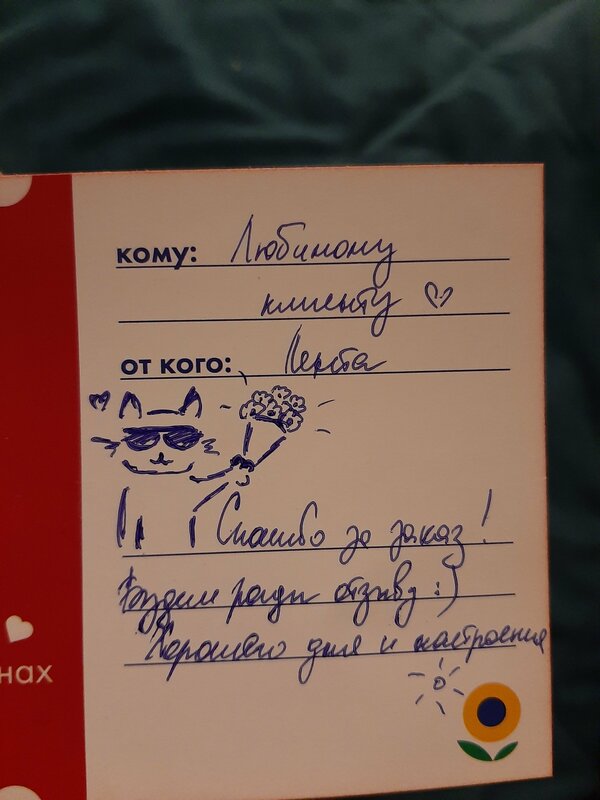 кому: Любимому
клиенту
от кого: Лента
Спасибо за заказ!
Будем рады отзыву :)
Хорошего дня и настроения
нах